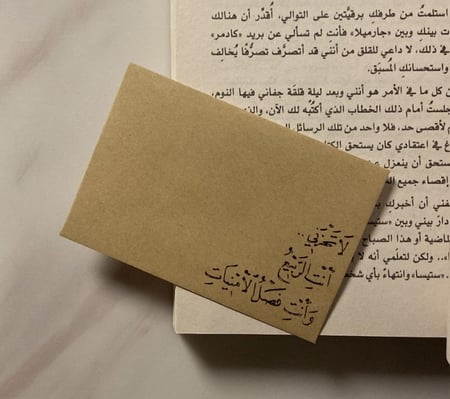 استلمتُ من طرفكِ برقيّتين على التوالي، أُقدِّر أن هنالك
بينكِ وبين «جارميلا» فأنتِ لم تسألي عن بريد «كادمر»
في ذلك، لا داعي للقلق من أنني قد أتصرَّف تصرفًا يُخالِف
واستحسانكِ المُسبَق.
كل ما في الأمر هو أنني وبعد ليلة قلقَة جفاني فيها النوم،
جلستُ أمام ذلك الخطاب الذي أكتُبُه لك الآن،
لأقصى حد، فلا واحد من تلك الرسائل
في اعتقادي كان يستحق
يستحق أن ينعزل
إقصاء جميع
أن أخبركِ
دارَ بيني وبين
الماضية أو هذا الصباح
ولكن لتعلَمي أنه
«ستيسا» وانتهاءً بأي
لَا تَحْزَنِي ..
أَنْتِ الرَّبِيعُ
وَأَنْتِ فَصْلُ الْأُمْنِيَاتِ